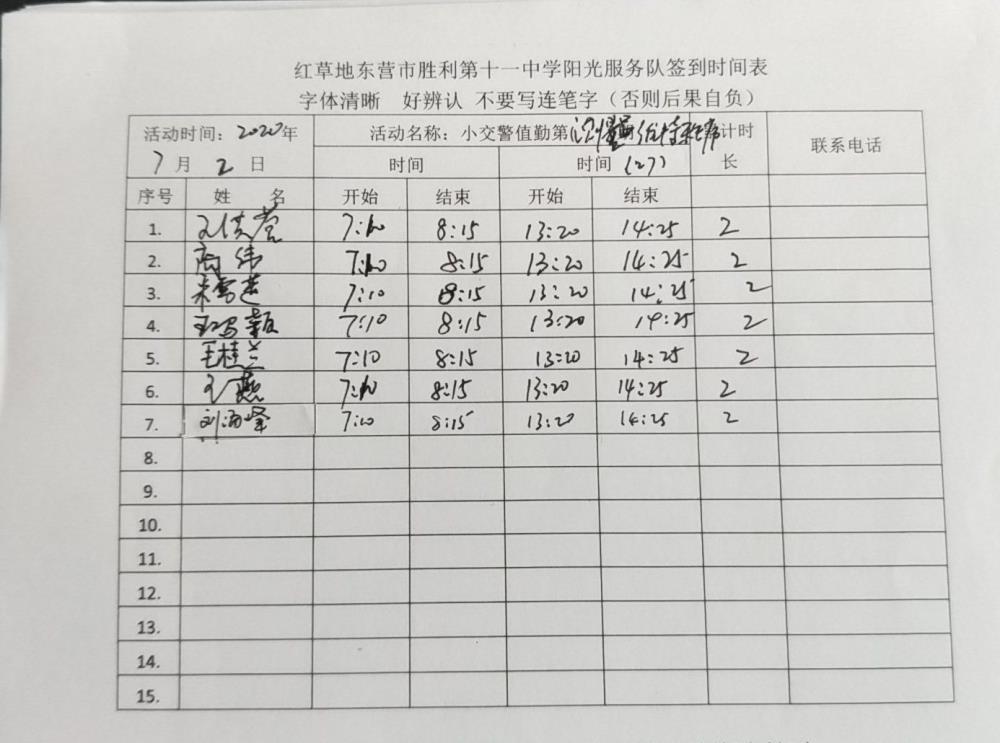 红草地东营市胜利第十一中学阳光服务队签到时间表
字体清晰 好辨认 不要写连笔字（否则后果自负）
活动时间：2020年 活动名称：小交警值勤第 计时 联系电话
7月2日 时间 时间 (27) 长
序号 姓 名 开始 结束 开始 结束
1. 7:10 8:15 13:20 14:25 2
2. 高伟 7:10 8:15 13:20 14:25 2
3. 7:10 8:15 13:20 14:25 2
4. 7:10 8:15 13:20 14:25 2
5. 王桂兰 7:10 8:15 13:20 14:25 2
6. 王燕 7:10 8:15 13:20 14:25 2
7. 刘海峰 7:10 8:15 13:20 14:25 2
8.
9.
10.
11.
12.
13.
14.
15.